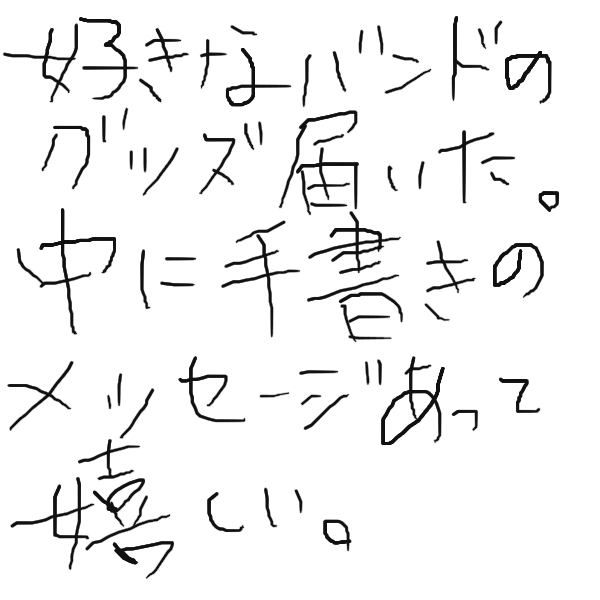 好きなバンドの
グッズ届いた。
中に手書きの
メッセージあって
嬉しい。